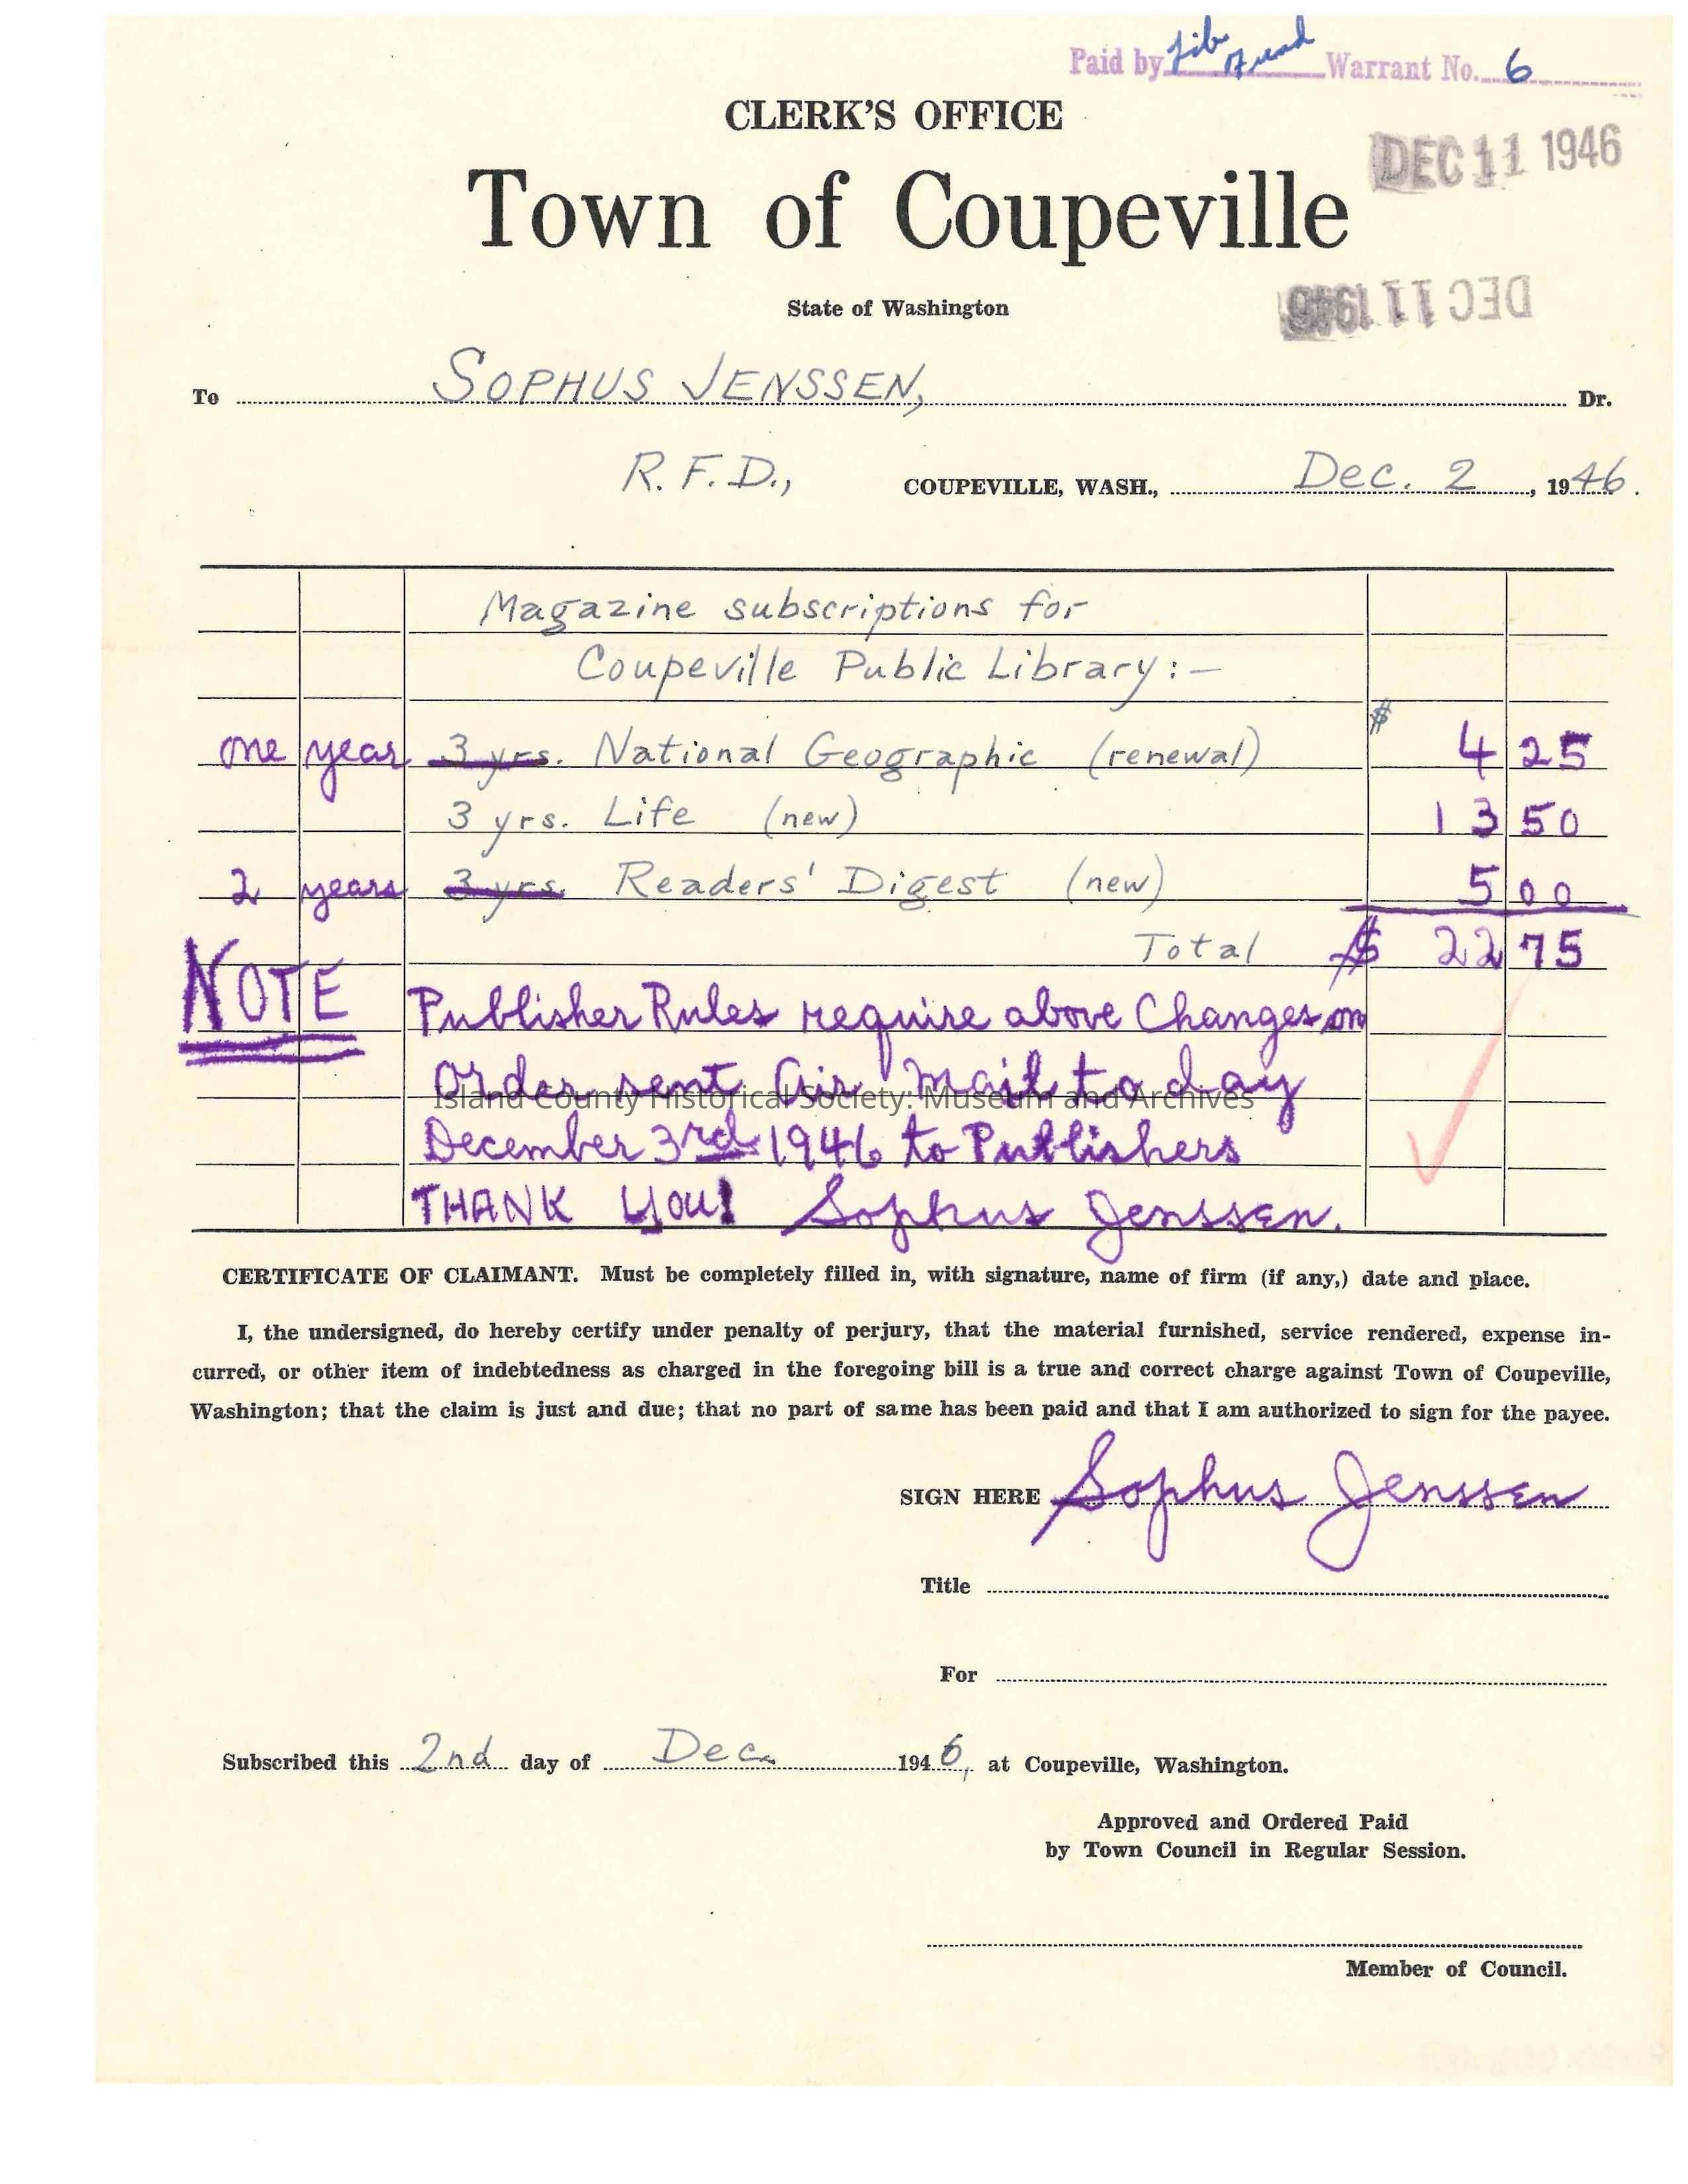 Paid by Lib Fund Warrant No. 6
CLERK'S OFFICE
DEC 11 1946
Town of Coupeville
State of Washington
DEC 11 1946
To SOPHUS JENSSEN, Dr.
R.F.D., COUPEVILLE, WASH., Dec. 2, 1946.
Magazine subscriptions for
Coupeville Public Library:-
one year 3 yrs. National Geographic (renewal) $ 4 25
3 yrs. Life (new) 13 50
2 years 3 yrs. Readers' Digest (new) 5 00
Total $ 22 75
NOTE Publisher Rules require above Changes on
Order sent Air Mail to day
Island County Historical Society: Museum and Archives
December 3rd 1946 to Publishers
THANK YOU! Sophus Jenssen.
CERTIFICATE OF CLAIMANT. Must be completely filled in, with signature, name of firm (if any,) date and place.
I, the undersigned, do hereby certify under penalty of perjury, that the material furnished, service rendered, expense in-
curred, or other item of indebtedness as charged in the foregoing bill is a true and correct charge against Town of Coupeville,
Washington; that the claim is just and due; that no part of same has been paid and that I am authorized to sign for the payee.
SIGN HERE Sophus Jenssen
Title
For
Subscribed this 2nd day of Dec. 1946, at Coupeville, Washington.
Approved and Ordered Paid
by Town Council in Regular Session.
Member of Council.